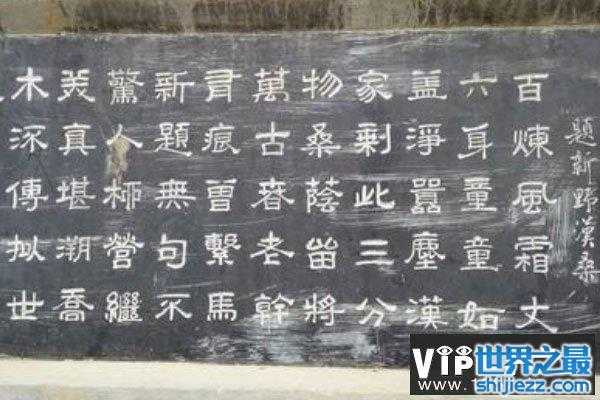 題新野漢桑
百煉風霜丈
六身童童如
盖淨囂塵漢
家剩此三分
物桑蔭畱將
萬古春老幹
有痕曾繫馬
新題無句不
驚人桺營繼
美真堪溯喬
木深傳拟世
VIP世界之最
shijiezz.com